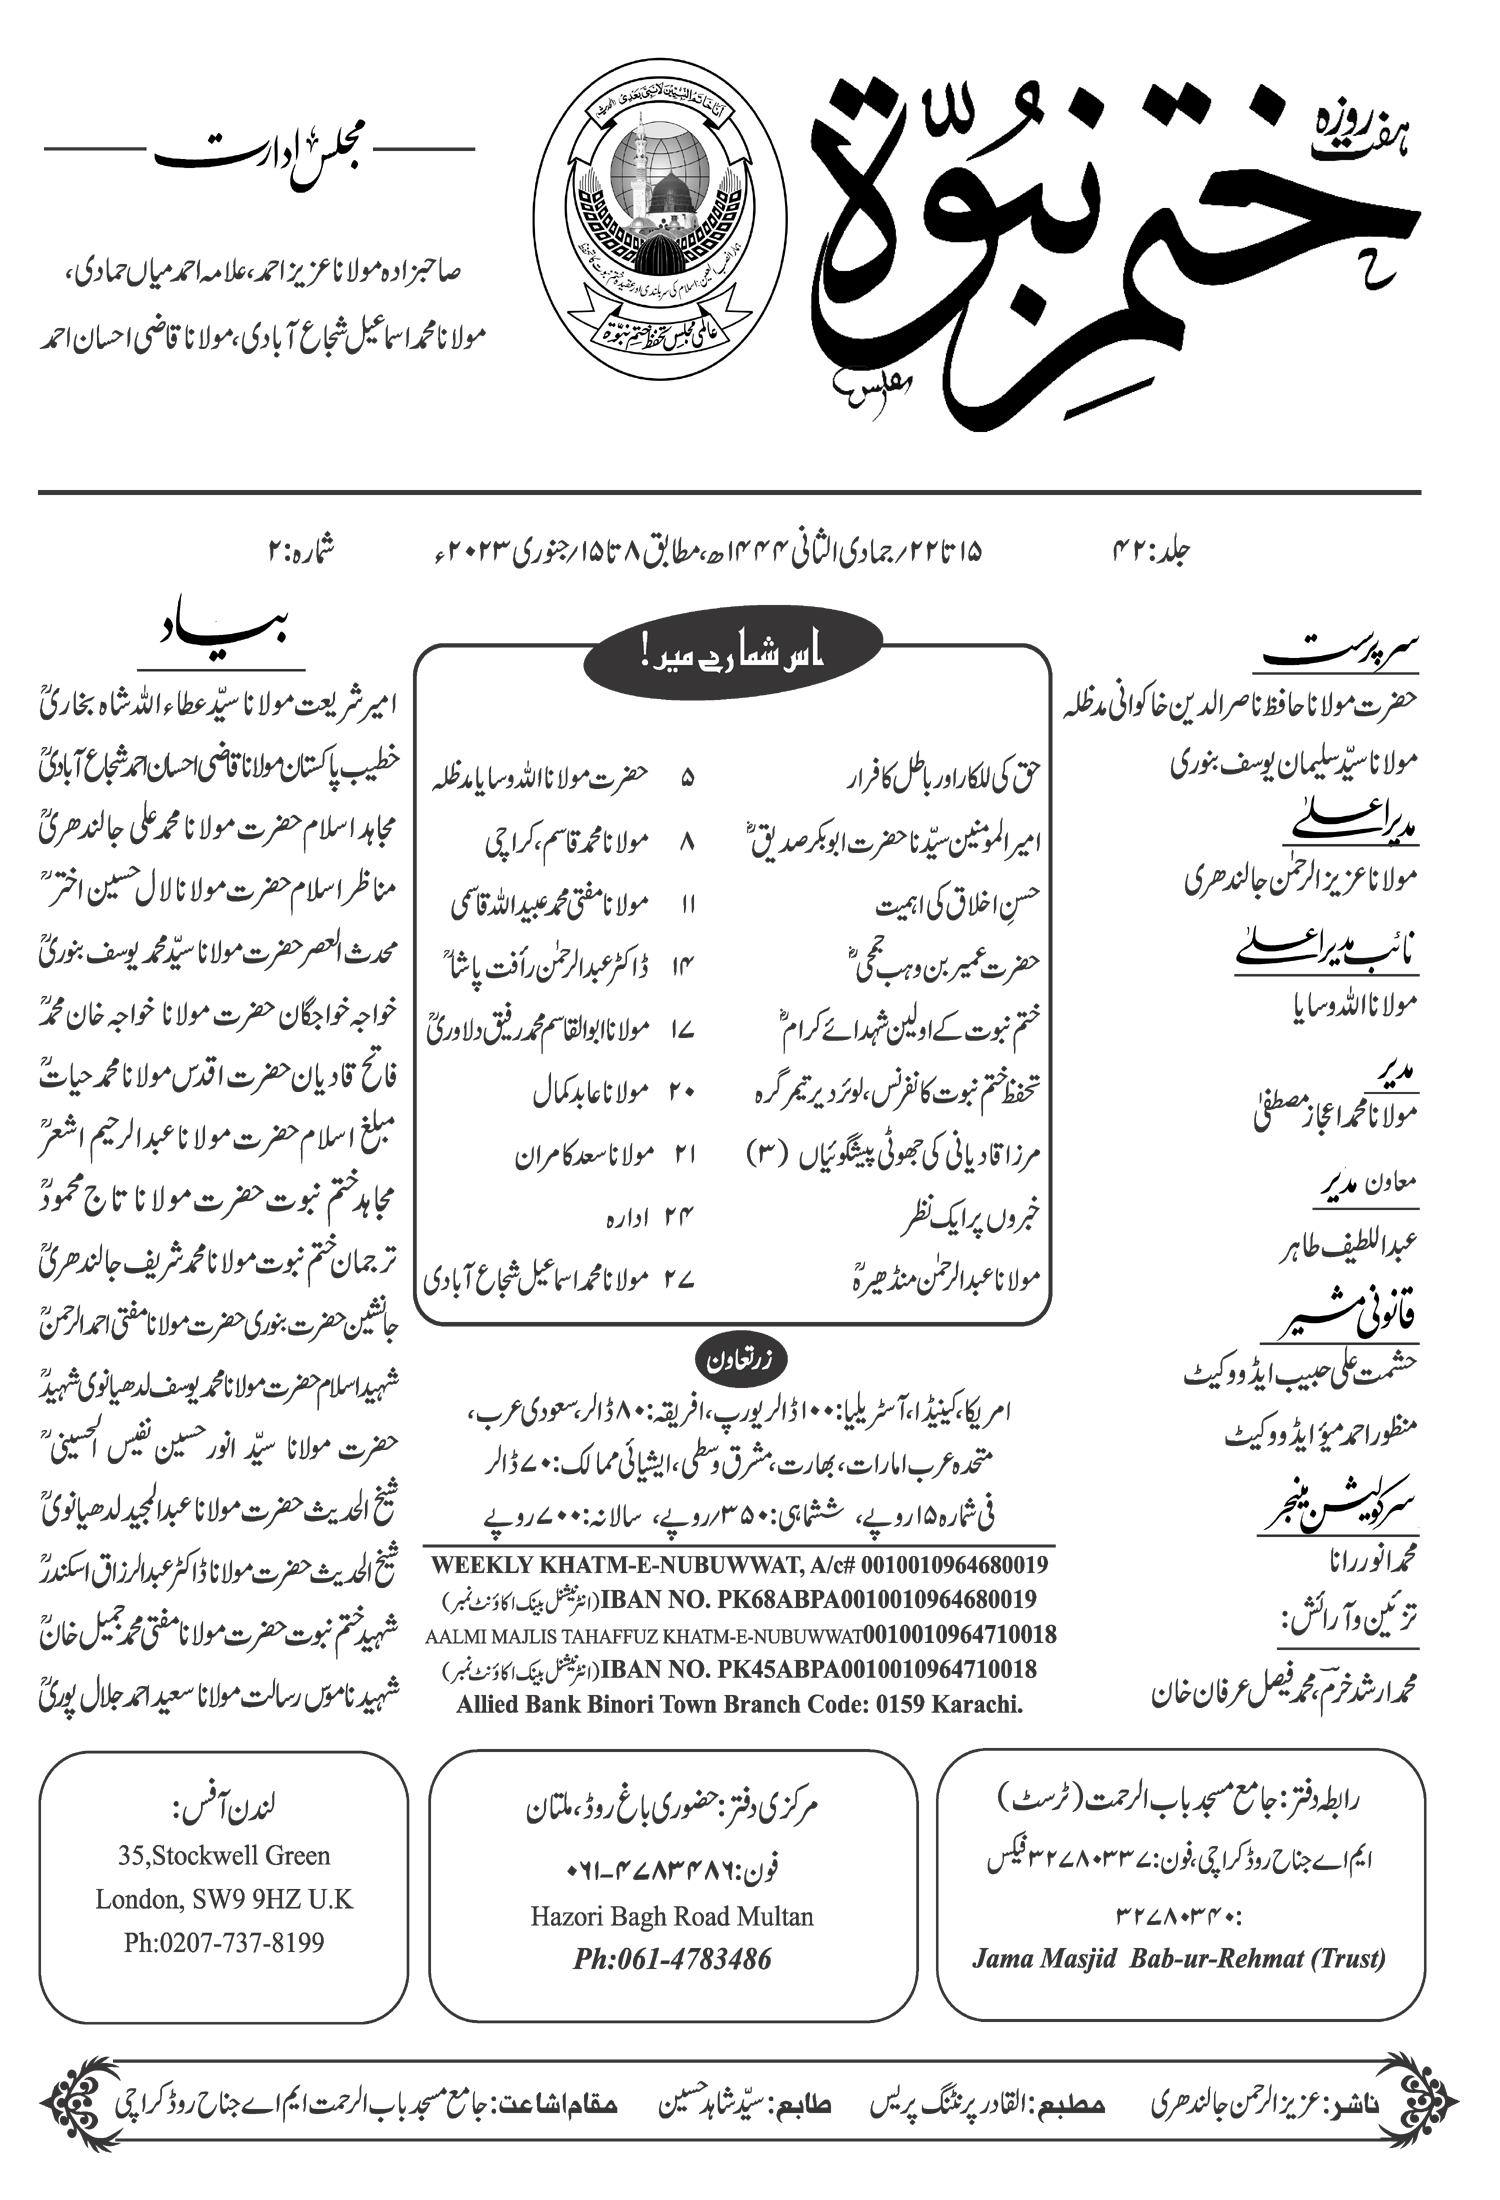 ہفت روزہ
ختم نبوّۃ
مجلس ادارت
صاحبزادہ مولانا عزیز احمد، علامہ احمد میاں حمادی،
مولانا محمد اسماعیل شجاع آبادی، مولانا قاضی احسان احمد
اَنَا خَاتَمُ النَّبِیّیْنَ لَا نَبِیَّ بَعْدِیْ
عالمی مجلس تحفظ ختم نبوّۃ
جلد: ۴۲
۱۵ تا ۲۲؍ جمادی الثانی ۱۴۴۴ھ، مطابق ۸ تا ۱۵؍ جنوری ۲۰۲۳ء
شمارہ: ۲
سرپرست
حضرت مولانا حافظ ناصر الدین خاکوانی مدظلہ
مولانا سیّد سلیمان یوسف بنوری
مدیر اعلےٰ
مولانا عزیز الرحمٰن جالندھری
نائب مدیر اعلےٰ
مولانا اللہ وسایا
مدیر
مولانا محمد اعجاز مصطفیٰ
معاون مدیر
عبداللطیف طاہر
قانونی مشیر
حشمت علی حبیب ایڈووکیٹ
منظور احمد میؤ ایڈووکیٹ
سرکولیشن مینجر
محمد انور رانا
تزئین و آرائش:
محمد ارشد خرم، محمد فیصل عرفان خان
اس شمارے میں!
حق کی للکار اور باطل کا فرار ۵ حضرت مولانا اللہ وسایا مدظلہ
امیر المومنین سیّدنا حضرت ابوبکر صدیقؓ ۸ مولانا محمد قاسم، کراچی
حسنِ اخلاق کی اہمیت ۱۱ مولانا مفتی محمد عبید اللہ قاسمی
حضرت عمیر بن وہب جمحیؓ ۱۴ ڈاکٹر عبدالرحمٰن رأفت پاشاؒ
ختم نبوت کے اولین شہدائے کرامؓ ۱۷ مولانا ابوالقاسم محمد رفیق دلاوریؒ
تحفظ ختم نبوت کانفرنس، لوئر دیر تیمرگرہ ۲۰ مولانا عابد کمال
مرزا قادیانی کی جھوٹی پیشگوئیاں (۳) ۲۱ مولانا سعد کامران
خبروں پر ایک نظر ۲۴ ادارہ
مولانا عبدالرحمٰن منڈھیرہؒ ۲۷ مولانا محمد اسماعیل شجاع آبادی
زر تعاون
امریکا، کینیڈا، آسٹریلیا: ۱۰۰ ڈالر یورپ، افریقہ: ۸۰ ڈالر، سعودی عرب،
متحدہ عرب امارات، بھارت، مشرق وسطی، ایشیائی ممالک: ۷۰ ڈالر
فی شمارہ ۱۵ روپے، ششماہی: ۳۵۰؍ روپے، سالانہ: ۷۰۰ روپے
WEEKLY KHATM-E-NUBUWWAT, A/c# 0010010964680019
IBAN NO. PK68ABPA0010010964680019 (انٹرنیشنل بینک اکاؤنٹ نمبر)
AALMI MAJLIS TAHAFFUZ KHATM-E-NUBUWWAT0010010964710018
IBAN NO. PK45ABPA0010010964710018 (انٹرنیشنل بینک اکاؤنٹ نمبر)
Allied Bank Binori Town Branch Code: 0159 Karachi.
بیاد
امیر شریعت مولانا سیّد عطاء اللہ شاہ بخاریؒ
خطیب پاکستان مولانا قاضی احسان احمد شجاع آبادیؒ
مجاہد اسلام حضرت مولانا محمد علی جالندھریؒ
مناظر اسلام حضرت مولانا لال حسین اخترؒ
محدث العصر حضرت مولانا سیّد محمد یوسف بنوریؒ
خواجہ خواجگان حضرت مولانا خواجہ خان محمدؒ
فاتح قادیان حضرت اقدس مولانا محمد حیاتؒ
مبلغ اسلام حضرت مولانا عبدالرحیم اشعرؒ
مجاہد ختم نبوت حضرت مولانا تاج محمودؒ
ترجمان ختم نبوت مولانا محمد شریف جالندھریؒ
جانشین حضرت بنوری حضرت مولانا مفتی احمد الرحمنؒ
شہید اسلام حضرت مولانا محمد یوسف لدھیانوی شہیدؒ
حضرت مولانا سیّد انور حسین نفیس الحسینیؒ
شیخ الحدیث حضرت مولانا عبدالمجید لدھیانویؒ
شیخ الحدیث حضرت مولانا ڈاکٹر عبدالرزاق اسکندرؒ
شہید ختم نبوت حضرت مولانا مفتی محمد جمیل خانؒ
شہید ناموس رسالت مولانا سعید احمد جلال پوریؒ
رابطہ دفتر: جامع مسجد باب الرحمت (ٹرسٹ)
ایم اے جناح روڈ کراچی، فون: ۳۲۷۸۰۳۳۷ فیکس
:۳۲۷۸۰۳۴۰
Jama Masjid Bab-ur-Rehmat (Trust)
مرکزی دفتر: حضوری باغ روڈ، ملتان
فون: ۰۶۱-۴۷۸۳۴۸۶
Hazori Bagh Road Multan
Ph:061-4783486
لندن آفس:
35,Stockwell Green
London, SW9 9HZ U.K
Ph:0207-737-8199
ناشر: عزیز الرحمن جالندھری مطبع: القادر پرنٹنگ پریس طابع: سیّد شاہد حسین مقام اشاعت: جامع مسجد باب الرحمت ایم اے جناح روڈ کراچی